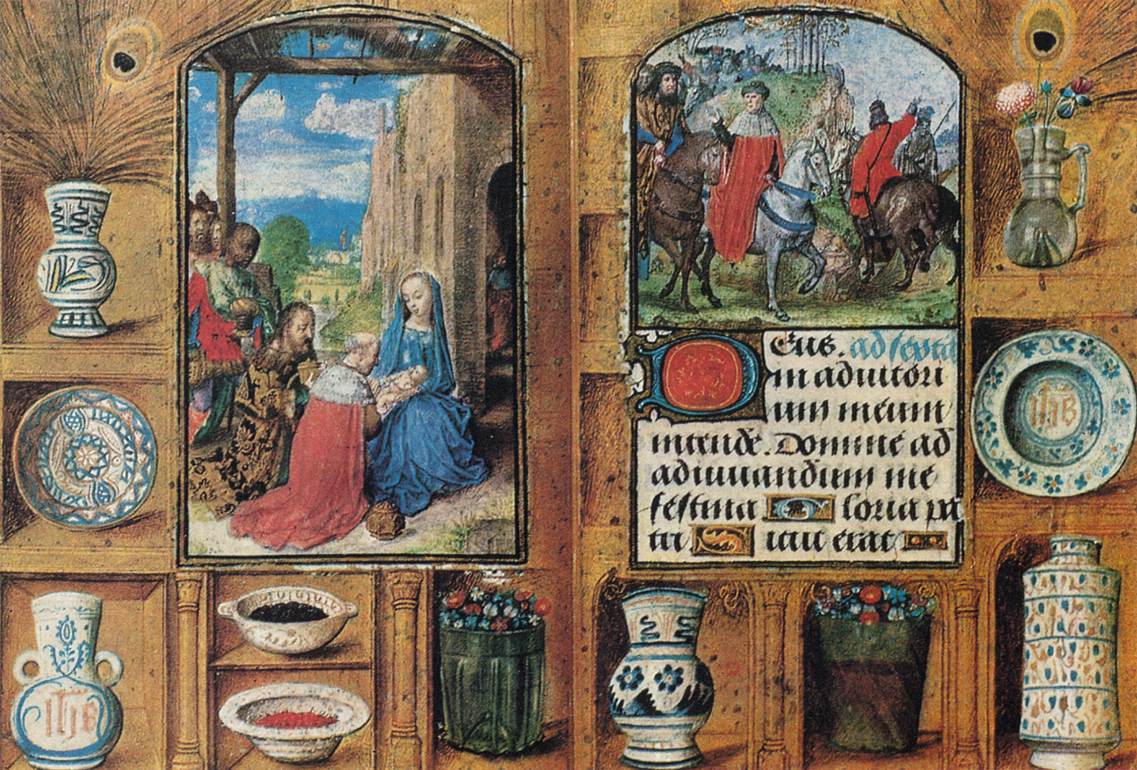 DEus. ad sexta
in adiutori
um meum
intende. Domine ad
adiuuandum me
festina Gloria pa
tri Sicut erat